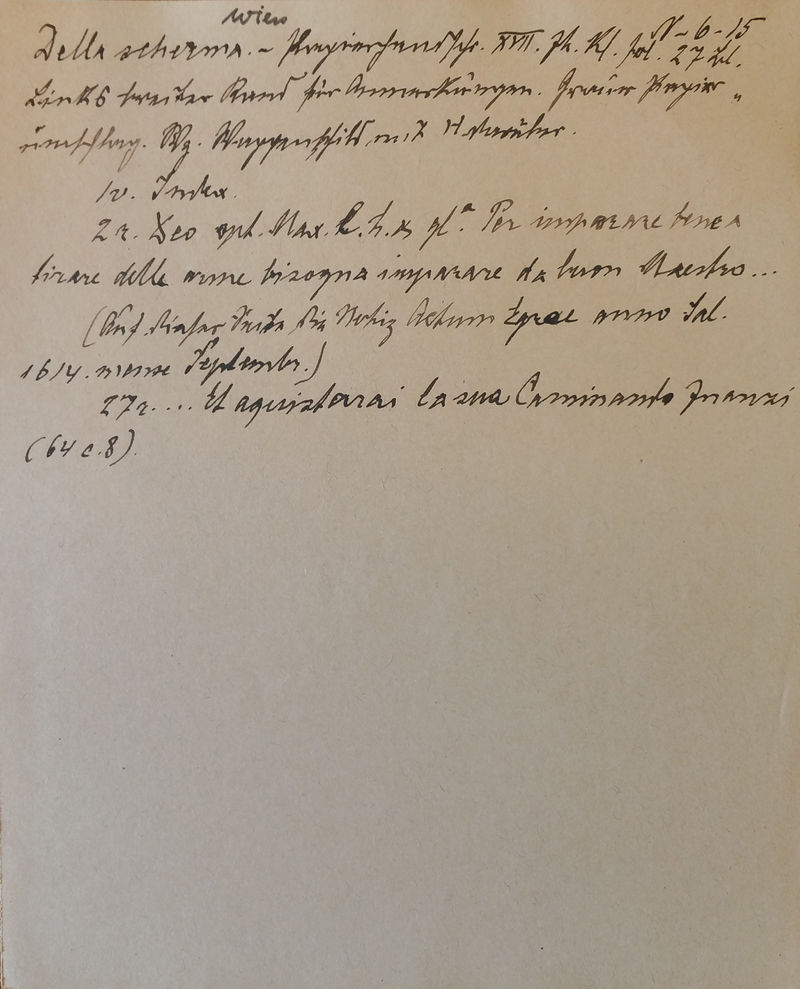 Wien
V-6-15
Della scherma. - Papierhandschr. XVII. Jh. Kl. fol. 27 Bl.
Links breiter Rand für Anmerkungen. Grauer Papier„
umschlag. Wz. Wappenschild mit H darüber.
1v. Index.
2r. Deo opt. Max. gl.ª Per imparare bene a
tirare delle arme bisogna imparare da buon Maestro...
(Auf dieser Seite die Notiz Actum anno Sal.
1614. mense Septembr.)
27r. ... Et aquistarai la sua Caminando Inanzi
(64 c. 8).